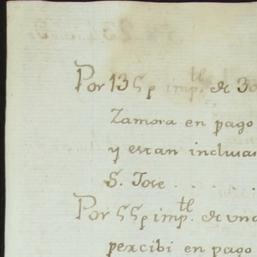 Por 135p imp.tl de 30
Zamora en pago
y estan inclusas
S. Jose . . . . .
Por 55p imp.tl de una
percibi en pago